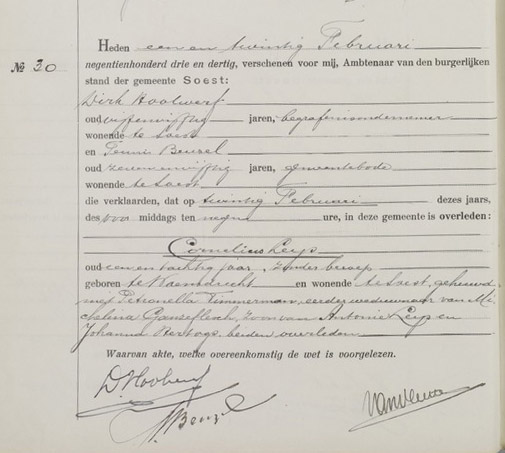 Nº 30
Heden een en twintig Februari
negentienhonderd drie en dertig, verschenen voor mij, Ambtenaar van den burgerlijken
stand der gemeente Soest:
Dirk Hoolwerf
oud vijfenvijftig jaren, begrafenisondernemer
wonende te Soest
en Teunis Beuzel
oud zevenenvijftig jaren, gemeentebode
wonende te Soest
die verklaarden, dat op twintig Februari dezes jaars,
des voor middags ten negen ure, in deze gemeente is overleden:
Cornelius Leijs
oud een en tachtig jaar, zonder beroep
geboren te Woensdrecht en wonende te Soest, gehuwd
met Petronella Timmerman, eerder weduwnaar van Mi-
chelina , zoon van Antonie Leijs en
Johanna Hertogs, beiden overleden
Waarvan akte, welke overeenkomstig de wet is voorgelezen.
D. Hoolwerf
T. Beuzel